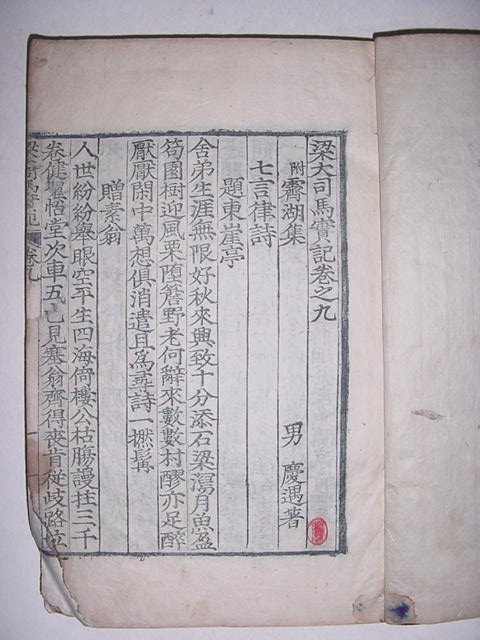 梁大司馬實記卷之九
附霽湖集 男 慶遇著
七言律詩
題東崖亭
舍弟生涯無限好秋來興致十分添石梁瀉月魚盈
笱園樹迎風栗随簷野老何辭來數數村醪亦足醉
厭厭閑中萬想俱消遣且為燕詩一撚髯
贈素翁
人世紛紛擧眼空平生四海倚樓公枯腸謾拄三千
卷健筆悟堂次車五已見塞翁齊得喪肯從歧路泣
梁大司馬實記 卷九